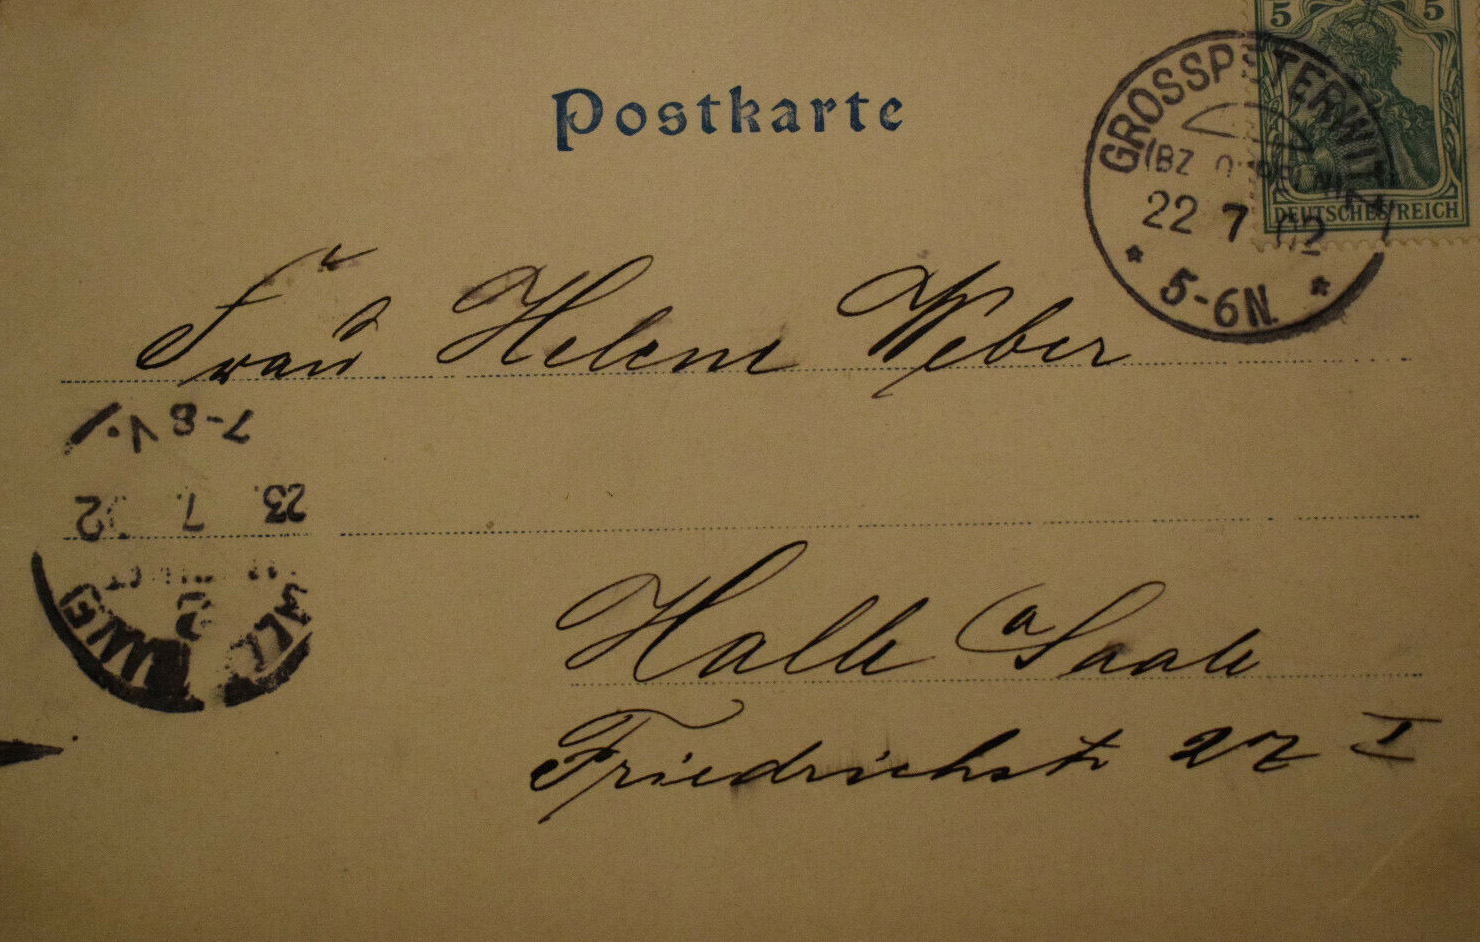 5 5
Postkarte
GROSSPETERWITZ
(BZ. OPPELN)
22 7 02
* 5-6N. *
DEUTSCHES REICH
Frau Helene Weber
7-8 V.
23. 7. 02
HALLE (SAALE)
2
Halle a Saale
Friedrichstr 27 I